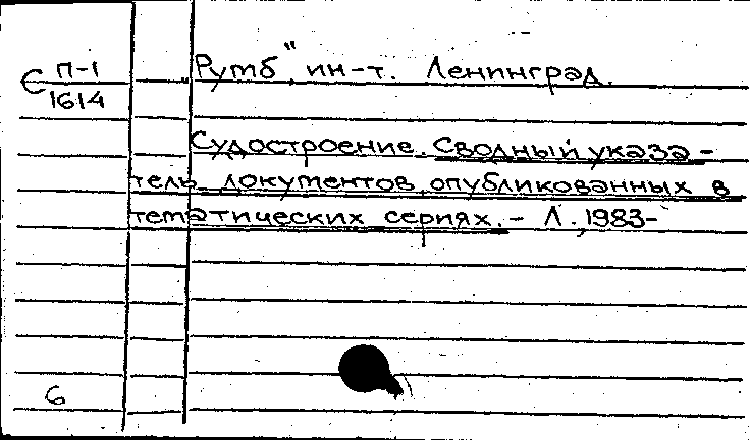 С П-1
1614
„Румб", ин-т. Ленинград.
Судостроение. Сводный указа-
тель документов, опубликованных в
тематических сериях. - Л., 1983-
6